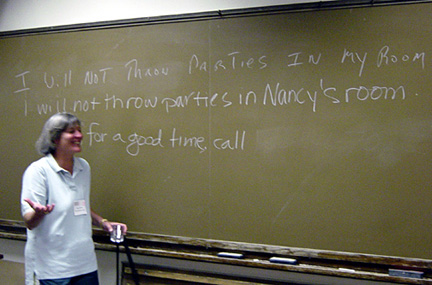 I Will NOT THROW PARTIES IN MY ROOM
I will not throw parties in Nancy's room.
for a good time, call